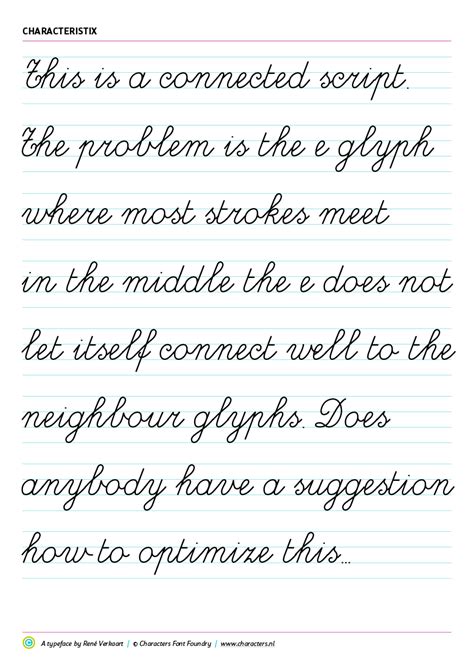 CHARACTERISTIX
This is a connected script.
The problem is the e glyph
where most strokes meet
in the middle the e does not
let itself connect well to the
neighbour glyphs. Does
anybody have a suggestion
how to optimize this...
A typeface by René Verkaart | © Characters Font Foundry | www.characters.nl